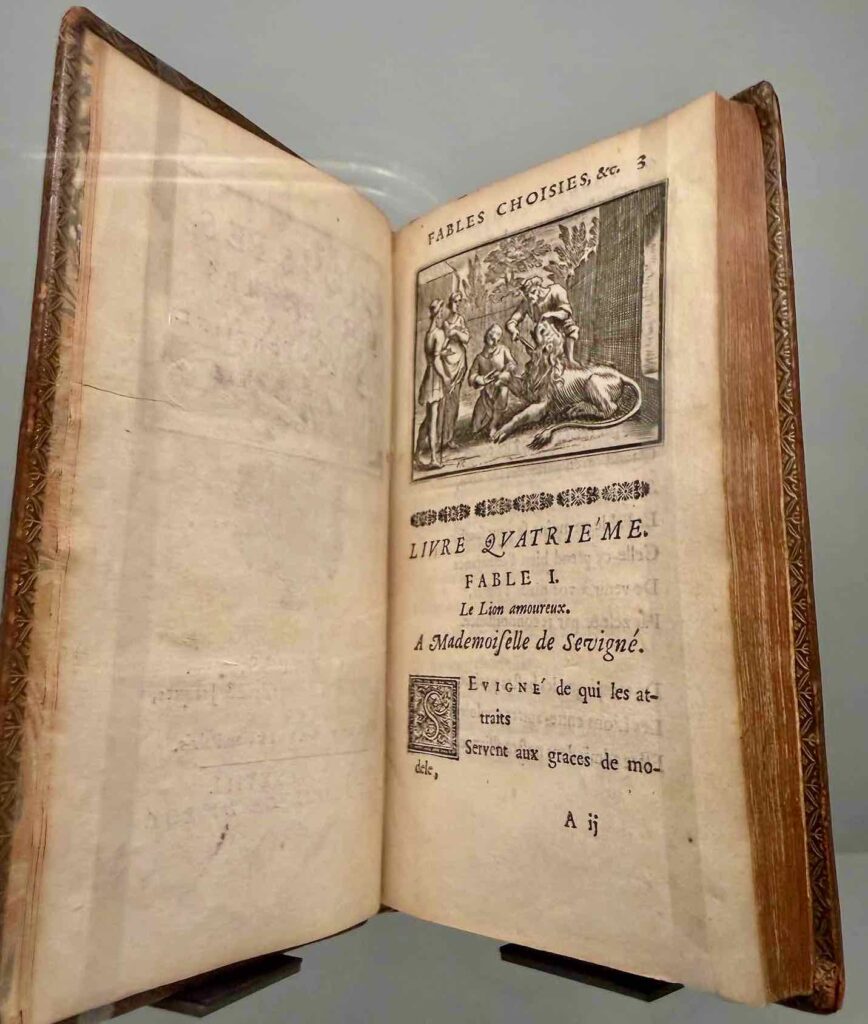 FABLES CHOISIES, &c. 3
LIVRE QVATRIE'ME.
FABLE I.
Le Lion amoureux.
A Mademoiſelle de Sevigné.
SEVIGNE' de qui les at-
traits
Servent aux graces de mo-
dele,
A ij